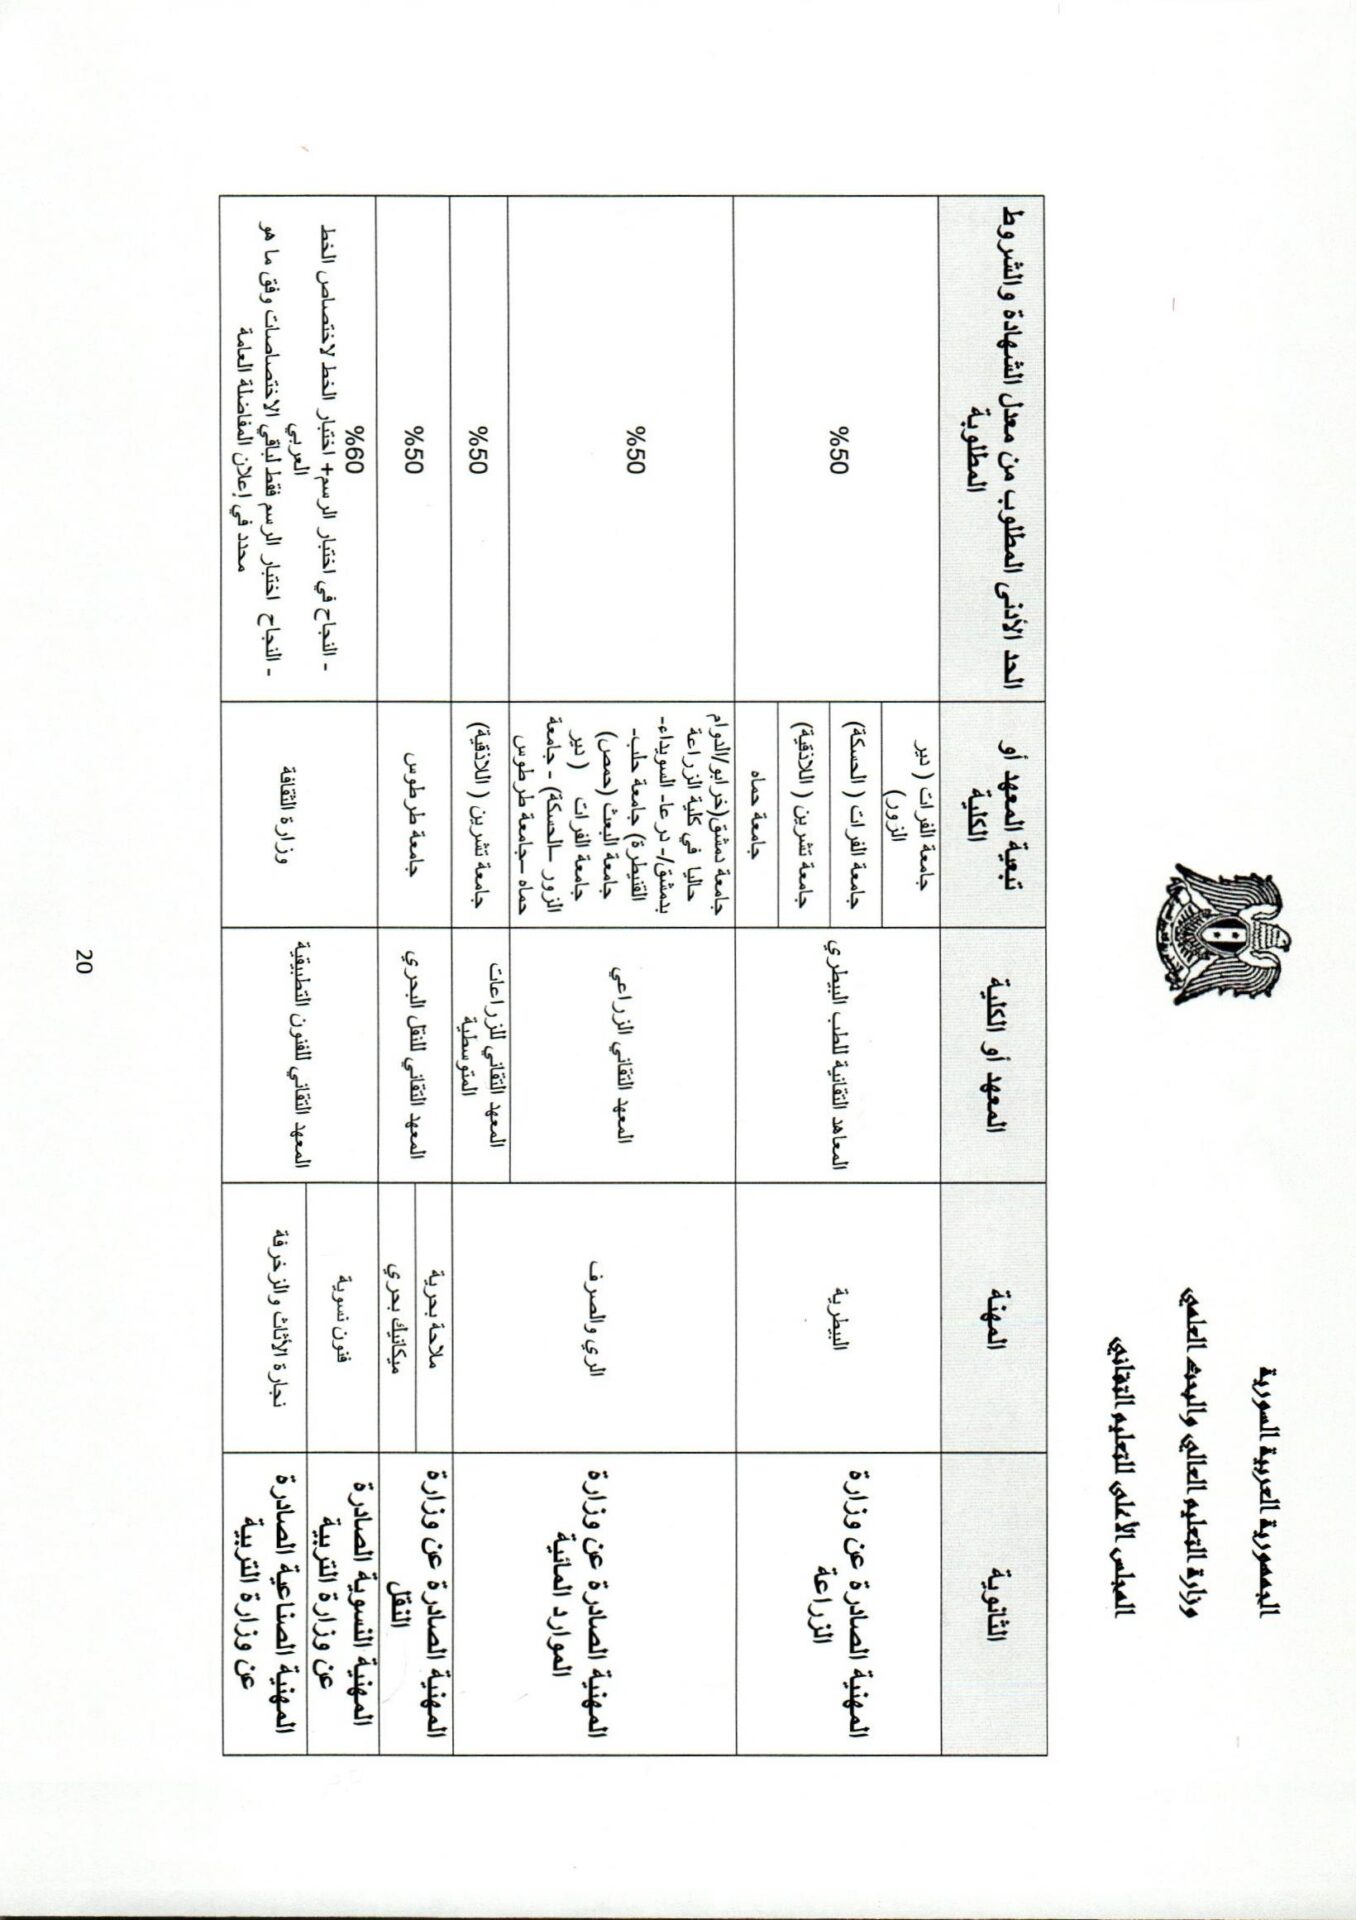 الجمهورية العربية السورية
وزارة التعليم العالي والبحث العلمي
المجلس الأعلى للتعليم التقاني
الثانوية
المهنة
المعهد أو الكلية
تبعية المعهد أو
الكلية
الحد الأدنى المطلوب من معدل الشهادة والشروط
المطلوبة
المهنية الصادرة عن وزارة
الزراعة
البيطرية
المعاهد التقانية للطب البيطري
جامعة الفرات ( دير
الزور)
جامعة الفرات ( الحسكة)
جامعة تشرين ( اللاذقية)
جامعة حماه
%50
المهنية الصادرة عن وزارة
الموارد المائية
الري والصرف
المعهد التقاني الزراعي
جامعة دمشق(خرابو/الدوام
حاليا في كلية الزراعة
بدمشق/- درعا- السويداء-
القنيطرة) جامعة حلب-
جامعة البعث (حمص)
جامعة الفرات ( دير
الزور –الحسكة) - جامعة
حماه –جامعة طرطوس
%50
المعهد التقاني للزراعات
المتوسطية
جامعة تشرين ( اللاذقية)
%50
المهنية الصادرة عن وزارة
النقل
ملاحة بحرية
ميكانيك بحري
المعهد التقاني للنقل البحري
جامعة طرطوس
%50
المهنية النسوية الصادرة
عن وزارة التربية
فنون نسوية
المعهد التقاني للفنون التطبيقية
وزارة الثقافة
%60
- النجاح في اختبار الرسم+ اختبار الخط لاختصاص الخط
العربي
- النجاح اختبار الرسم فقط لباقي الاختصاصات وفق ما هو
محدد في إعلان المفاضلة العامة
المهنية الصناعية الصادرة
عن وزارة التربية
نجارة الأثاث والزخرفة
20